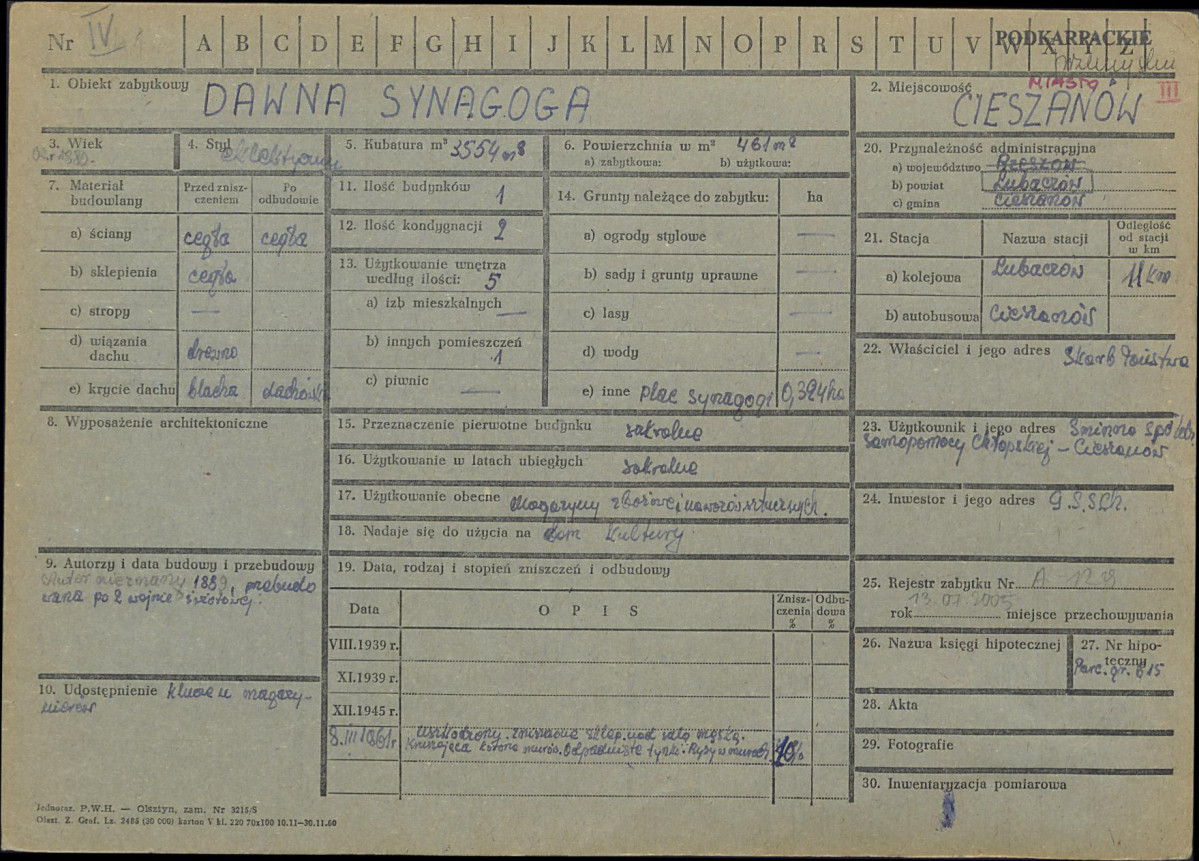 Nr IV
A B C D E F G H I J K L M N O P R S T U V W X Y Z
PODKARPACKIE
1. Obiekt zabytkowy DAWNA SYNAGOGA
2. Miejscowość MIASTO III
CIESZANÓW
3. Wiek
r 1889.
4. Styl eklektyzm
5. Kubatura m³ 3554 m³
6. Powierzchnia w m² 461 m²
a) zabytkowa: b) użytkowa:
20. Przynależność administracyjna
a) województwo Rzeszów
b) powiat Lubaczów
c) gmina Cieszanów
7. Materiał budowlany
Przed zniszczeniem
Po odbudowie
a) ściany cegła cegła
b) sklepienia cegła
c) stropy —
d) wiązania dachu drewno
e) krycie dachu blacha dachówka
11. Ilość budynków 1
12. Ilość kondygnacji 2
13. Użytkowanie wnętrza
według ilości: 5
a) izb mieszkalnych —
b) innych pomieszczeń
1
c) piwnic —
14. Grunty należące do zabytku: ha
a) ogrody stylowe —
b) sady i grunty uprawne —
c) lasy —
d) wody —
e) inne plac synagogi 0,324 ha
21. Stacja Nazwa stacji Odległość od stacji w km
a) kolejowa Lubaczów 11 km
b) autobusowa Cieszanów
22. Właściciel i jego adres Skarb Państwa
8. Wyposażenie architektoniczne
15. Przeznaczenie pierwotne budynku sakralne
16. Użytkowanie w latach ubiegłych sakralne
17. Użytkowanie obecne Magazyny zbożowe i nawozów sztucznych.
18. Nadaje się do użycia na dom Kultury
23. Użytkownik i jego adres Gminna Spółdz.
samopomocy Chłopskiej – Cieszanów
24. Inwestor i jego adres G.S.SCh.
9. Autorzy i data budowy i przebudowy
Autor nieznany 1889, przebudo
wana po 2 wojnie światowej.
19. Data, rodzaj i stopień zniszczeń i odbudowy
Data OPIS Zniszczenia % Odbudowa %
VIII.1939 r.
XI.1939 r.
XII.1945 r.
8.III 1961r uszkodzony. zniszczone sklep. nad salą męską.
Krusząca korona murów. Odpadnięte tynki. Rysy w murach 10%
25. Rejestr zabytku Nr A-129
13.07.2005
rok miejsce przechowywania
26. Nazwa księgi hipotecznej
27. Nr hipoteczny
Parc. gr. 615
10. Udostępnienie klucze u magazy-
niera
28. Akta
29. Fotografie
30. Inwentaryzacja pomiarowa
Jednoraz. P.W.H. — Olsztyn, zam. Nr 3215/S
Olszt. Z. Graf. Lz. 2485 (30 000) karton V kl. 220 70x100 10.11—30.11.60